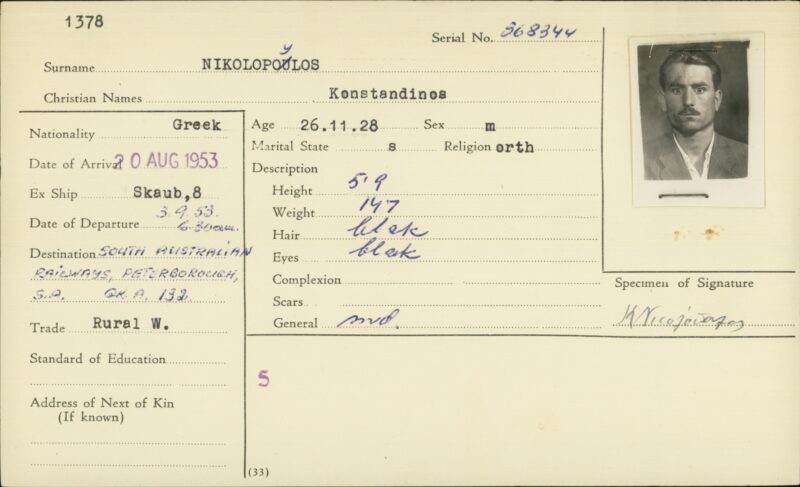 1378
Serial No. 368344
Surname NIKOLOPOYLOS
Christian Names Konstandinos
Nationality Greek
Date of Arrival 20 AUG 1953
Ex Ship Skaub,8
Date of Departure 3.9.53.
6.30am.
Destination SOUTH AUSTRALIAN
RAILWAYS, PETERBOROUGH,
S.A. GK.A. 132
Trade Rural W.
Standard of Education
Address of Next of Kin
(If known)
Age 26.11.28 Sex m
Marital State s Religion orth
Description
Height 5'9
Weight 147
Hair blak
Eyes blak
Complexion
Scars
General
5
(33)
Specimen of Signature